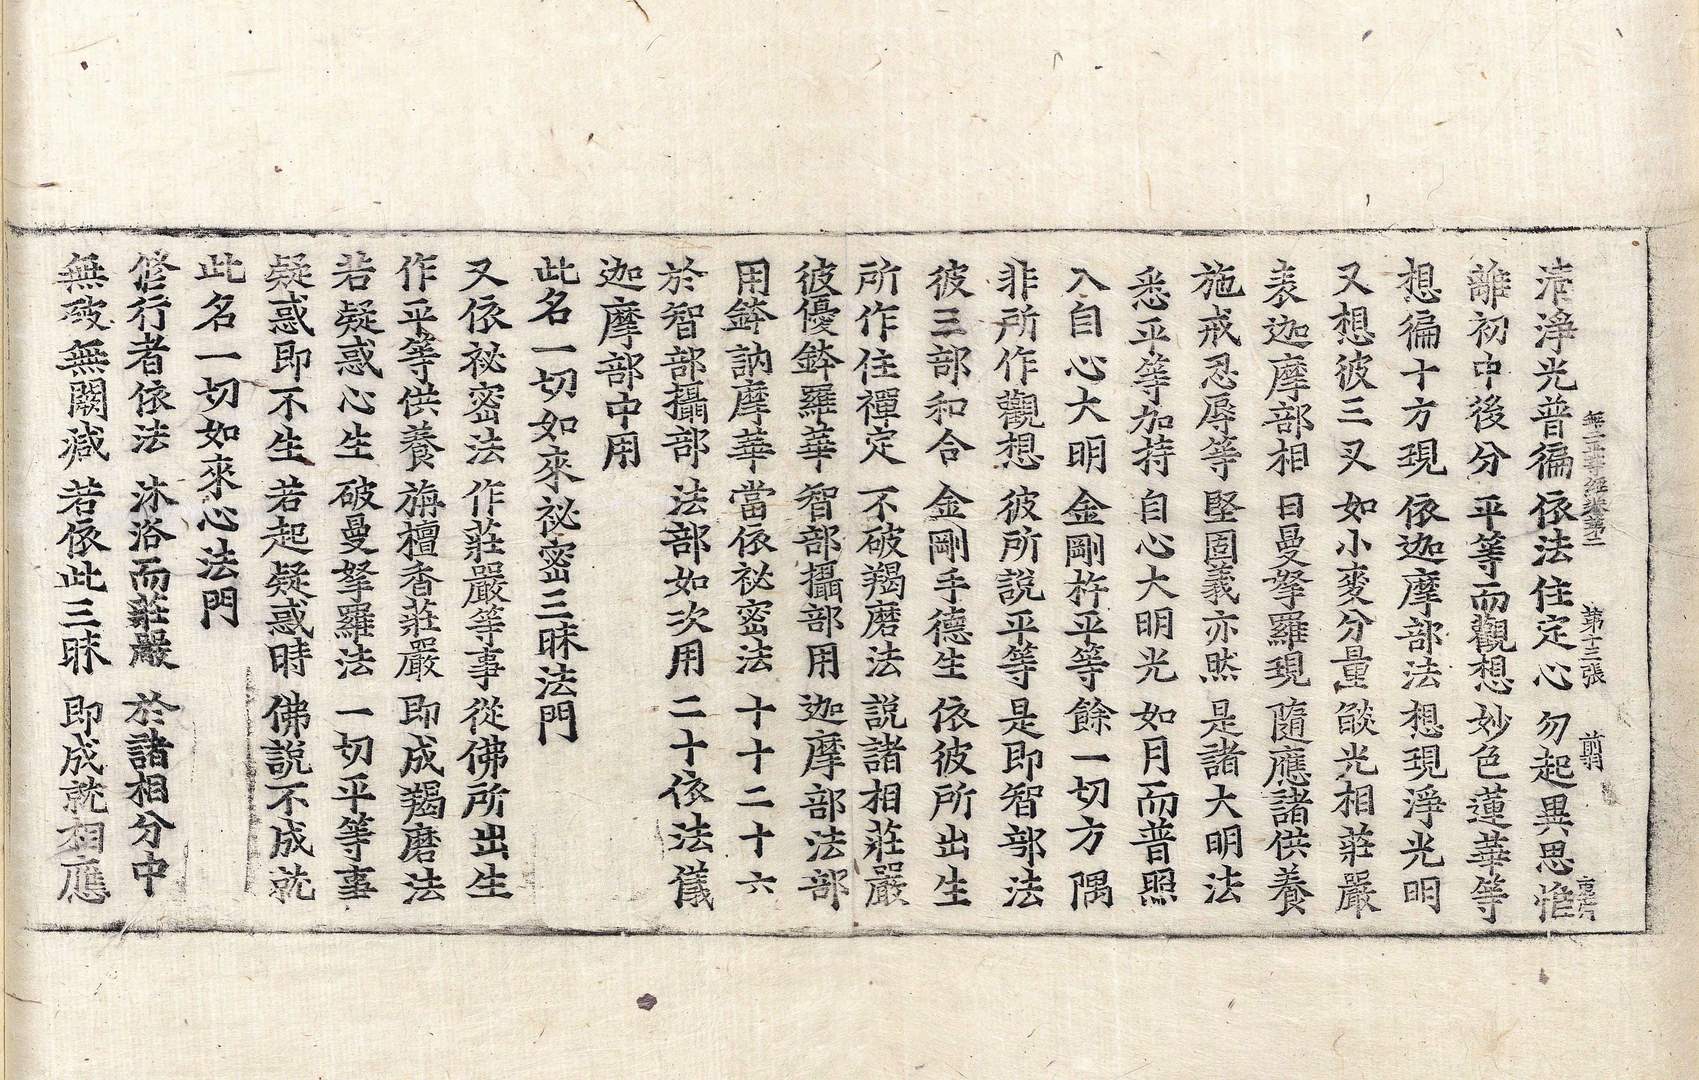 無二平等經卷第二 第十三張 翦
清淨光普徧 依法住定心 勿起異思惟
離初中後分 平等而觀想 妙色蓮華等
想徧十方現 依迦摩部法 想現淨光明
又想彼三叉 如小麥分量 燄光相莊嚴
表迦摩部相 日曼拏羅現 隨應諸供養
施戒忍辱等 堅固義亦然 是諸大明法
悉平等加持 自心大明光 如月而普照
入自心大明 金剛杵平等 餘一切方隅
非所作觀想 彼所說平等 是即智部法
彼三部和合 金剛手德生 依彼所出生
所作住禪定 不破羯磨法 說諸相莊嚴
彼優鉢羅華 智部攝部用 迦摩部法部
用鉢訥摩華 當依祕密法 十十二十六
於智部攝部 法部如次用 二十依法儀
迦摩部中用
此名一切如來祕密三昧法門
又依祕密法 作莊嚴等事 從佛所出生
作平等供養 旃檀香莊嚴 即成羯磨法
若疑惑心生 破曼拏羅法 一切平等事
疑惑即不生 若起疑惑時 佛說不成就
此名一切如來心法門
修行者依法 沐浴而莊嚴 於諸相分中
無破無闕減 若依此三昧 即成就相應